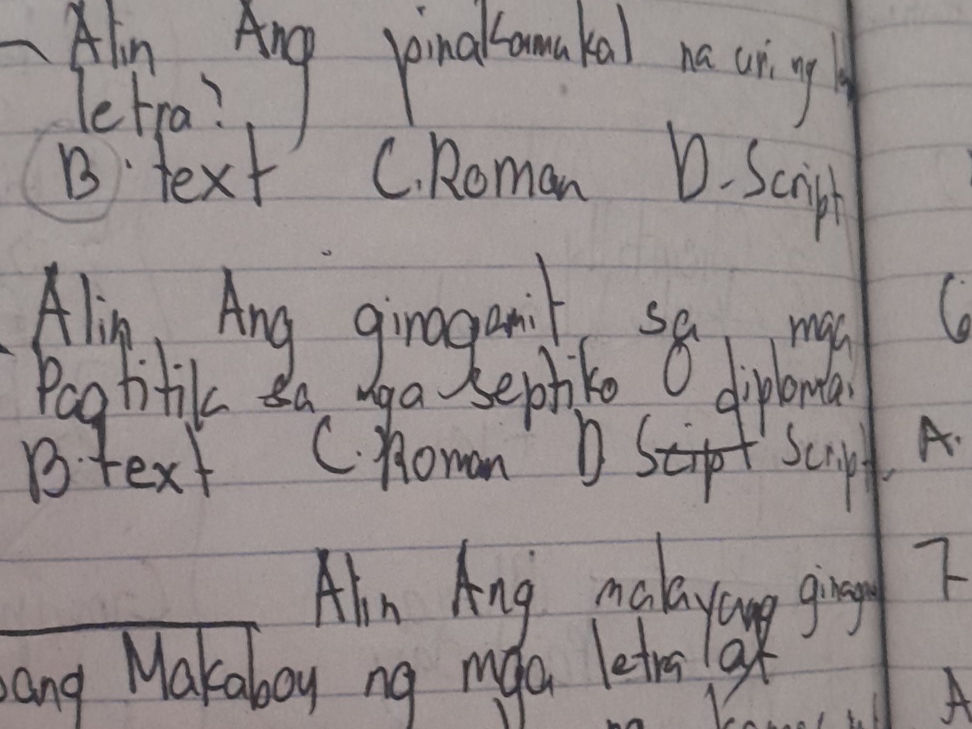 Alin Ang pinakamakal na uri ng
letra?
B. text C. Roman D. Script
Alin Ang ginagamit sa mga
Pagtitik sa mga septiko O diploma.
B. text C. Roman D Script Script.
Alin Ang malayang
Makaboy ng mga letra at
G
A.
7
A